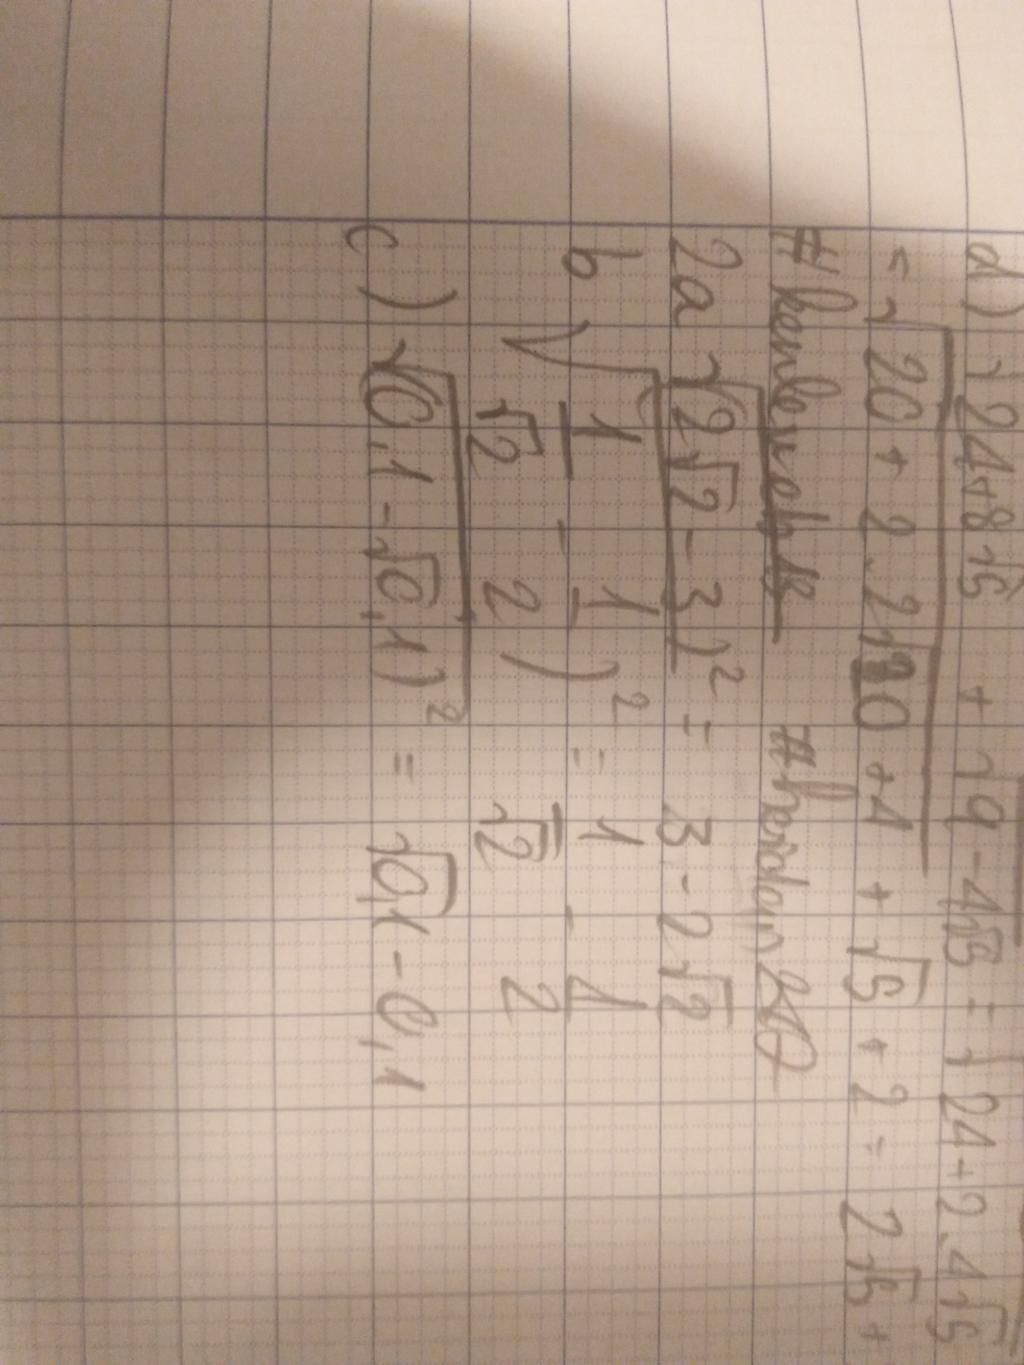 d) √24+8√5 + √9-4√5 = √24+2.4√5
= √20+2.2√20+4 + √5+2 = 2√5+
2a √(2√2-3)² = 3-2√2
b √(1/√2 - 1/2)² = 1/√2 - 1/2
c) √(0,1-√0,1)² = √0,1-0,1